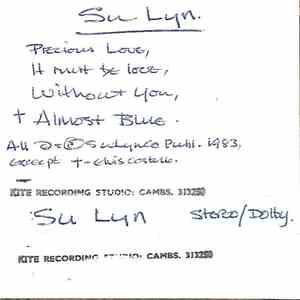 Su Lyn.
Precious Love,
It must be love,
Without You,
+ Almost Blue.
All ©+℗ SuLynCo Publ. 1983,
except + - Elvis Costello.
KITE RECORDING STUDIO: CAMBS. 313250
Su Lyn Stereo/Dolby.
KITE RECORDING STUDIO: CAMBS. 313250